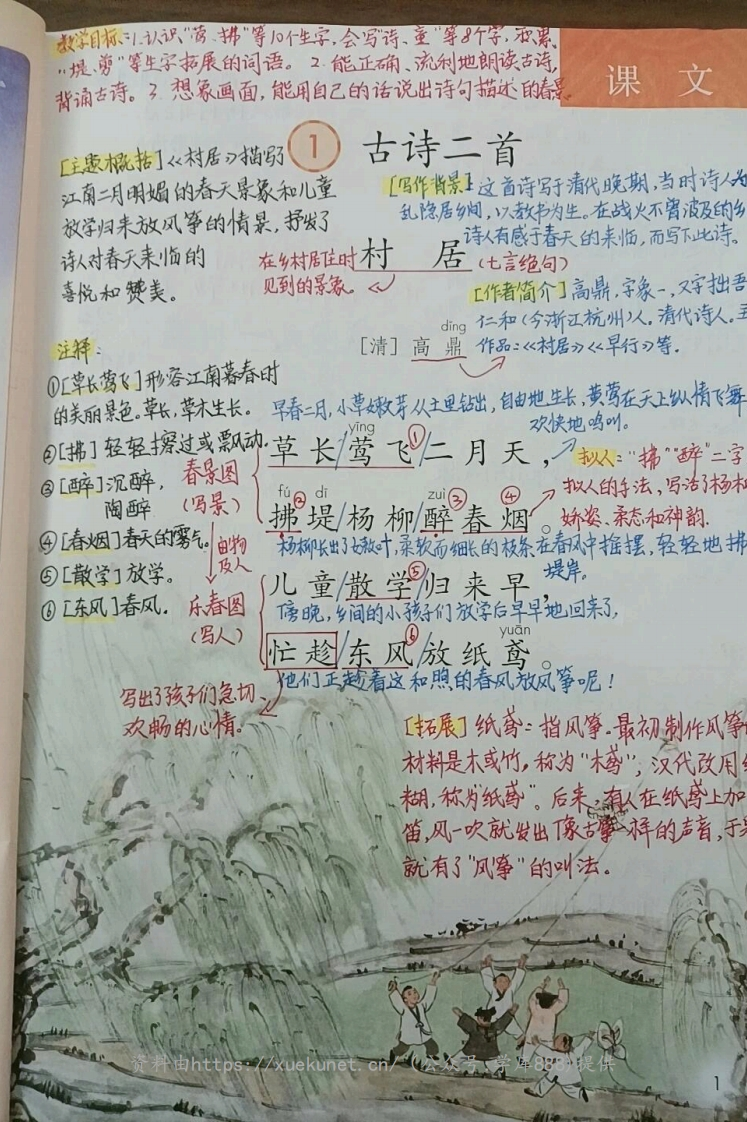 教学目标：1.认识"莺、拂"等10个生字，会写"诗、童"等8个字，积累
"堤、剪"等生字拓展的词语。 2.能正确、流利地朗读古诗，
背诵古诗。 3.想象画面，能用自己的话说出诗句描述的春景
课 文
1 古诗二首
[主题概括]《村居》描写
江南二月明媚的春天景象和儿童
放学归来放风筝的情景，抒发了
诗人对春天来临的
喜悦和赞美。
[写作背景]这首诗写于清代晚期，当时诗人为
乱隐居乡间，以教书为生。在战火不曾波及的乡
诗人有感于春天的来临，而写下此诗。
村 居
(七言绝句)
在乡村居住时
见到的景象。
[作者简介]高鼎，字象一，又字拙吾
仁和(今浙江杭州)人。清代诗人。
作品:《村居》《早行》等.
dǐng
[清] 高 鼎
注释：
①[草长莺飞]形容江南暮春时
的美丽景色。草长，草木生长。
②[拂]轻轻擦过或飘动.
③[醉]沉醉，
陶醉
④[春烟]春天的雾气。
⑤[散学]放学。
⑥[东风]春风.
春景图
(写景)
由物
及人
乐春图
(写人)
早春二月，小草嫩芽从土里钻出，自由地生长，黄莺在天上纵情飞舞
欢快地鸣叫。
yīng
草长/莺飞①/二月天，
拟人："拂""醉"二字
拟人的手法，写活了杨柳
娇姿、柔态和神韵.
fú dī zuì
拂②堤杨柳醉③春烟④。
杨柳长出了嫩叶，柔软而细长的枝条在春风中摇摆，轻轻地拂
堤岸。
儿童/散学⑤/归来早，
傍晚，乡间的小孩子们放学后早早地回来了，
yuān
忙趁/东风⑥/放纸鸢。
他们正趁着这和煦的春风放风筝呢！
写出了孩子们急切、
欢畅的心情。
[拓展]纸鸢：指风筝。最初制作风筝
材料是木或竹，称为"木鸢"，汉代改用
糊，称为"纸鸢"。后来，有人在纸鸢上加
笛，风一吹就发出像古筝一样的声音，于
就有了"风筝"的叫法。
资料由https://xuekunet.cn/（公众号:学库888)提供
1